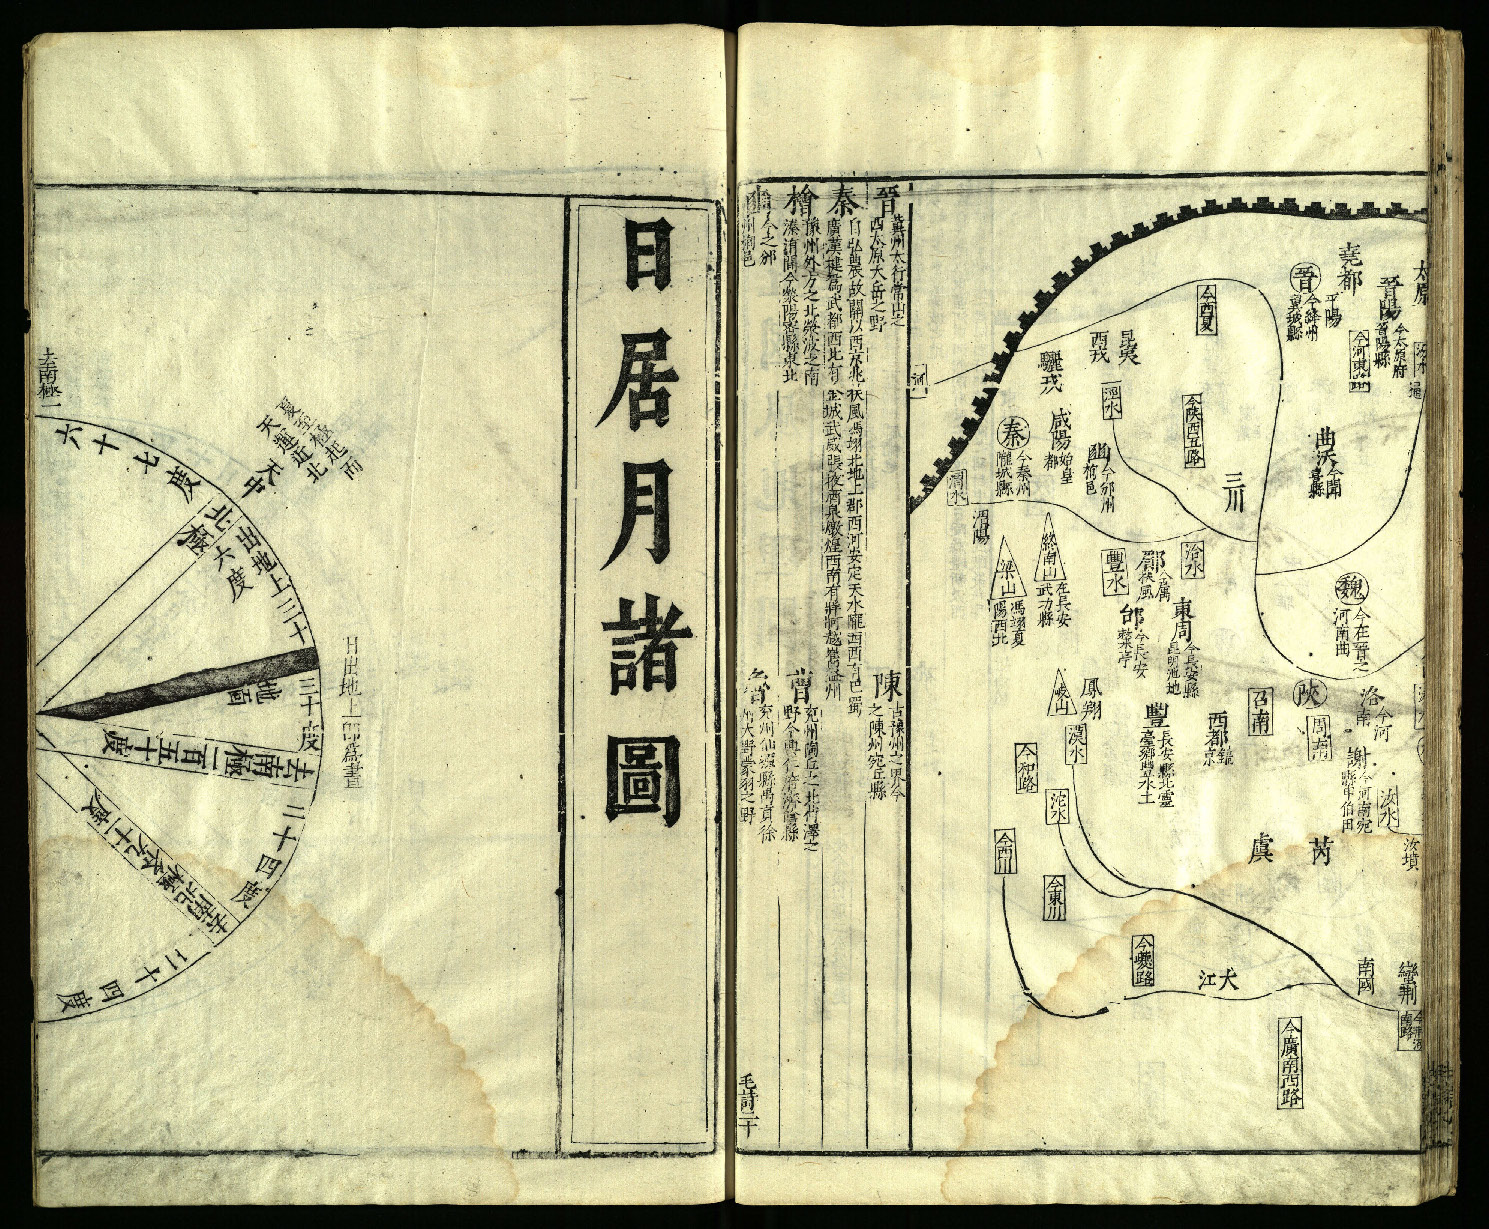 太原
堯都
平陽
晉陽
今太原府
晉陽縣
今河東路
晉
今絳州
翼城縣
今西夏
昆夷
西戎
驪戎
河
涇水
今陜西五路
咸陽
始皇
都
豳
今邠州
栒邑
秦
今秦州
隴城縣
曲沃
今聞
喜縣
三川
渭水
渭陽
終南山
在長安
武功縣
梁山
馮翊夏
陽西北
豐水
鄠
今屬
扶風
洽水
魏
今在晉之
河南曲
東周
今長安縣
昆明池地
邰
今長安
斄亭
岐山
鳳翔
豐
長安縣北靈
臺鄉豐水土
西都
鎬
京
召南
陜
周南
洛
今河
南
謝
今河南宛
縣申伯田
汝水
汝墳
漢水
今和路
沱水
今西川
今東川
虞
芮
今夔路
大江
南國
蠻荆
今廣南西路
晉
冀州太行常山之
西太原大岳之野
秦
自弘農故關以西京兆扶風馮翊北地上郡西河安定天水隴西西有巴蜀
廣漢犍爲武都西北有金城武威張掖酒泉燉煌西南有牂牁越嶲益州
檜
豫州外方之北滎波之南
溱洧間今滎陽密縣東北
豳
今之邠
州栒邑
陳
古豫州之界今
之陳州宛丘縣
曹
兗州陶丘之北菏澤之
野今興仁濟陰縣
魯
兗州仙源縣禹貢徐
州大野蒙羽之野
毛詩
日居月諸圖
夏至極起而
天運近北
天中
去南極一
六十七度
北極
出地上三十
六度
日出地上即爲晝
地面
三十度
去南極一百五十度
二十四度
去南極九十一度
三十四度